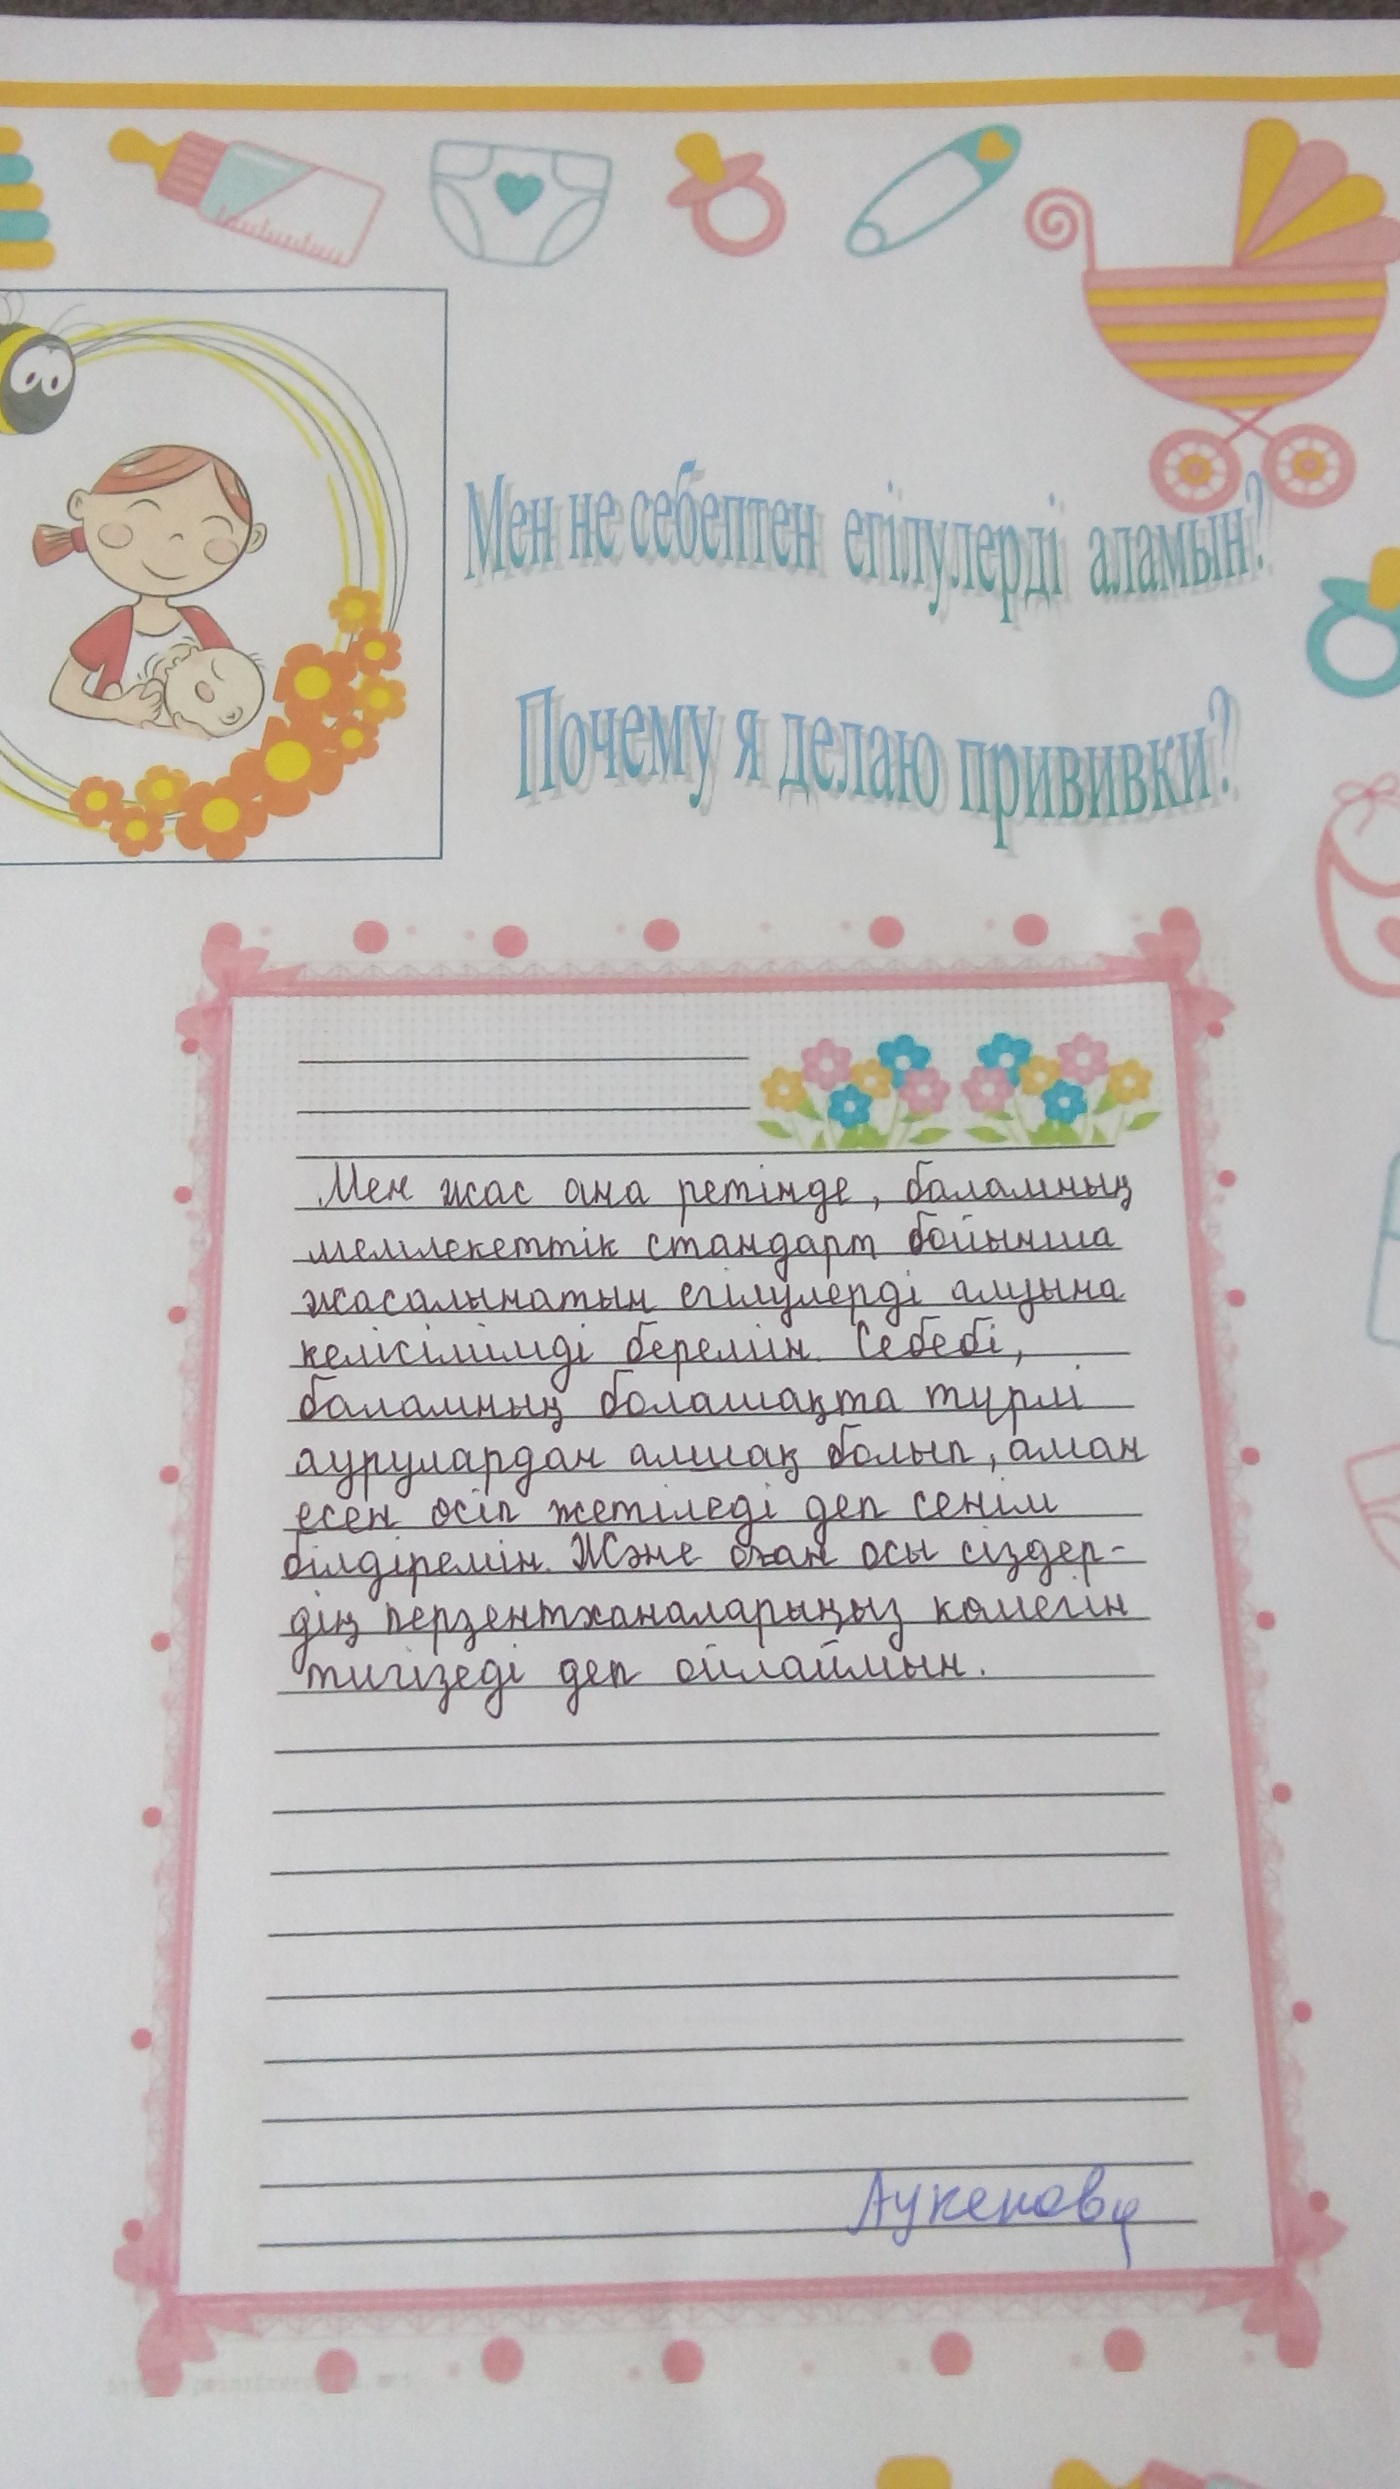 Мен не себептен егілулерді аламын?
Почему я делаю прививки?
Мен жас ана ретінде, баламның
мемлекеттік стандарт бойынша
жасалынатын егілулерді алуына
келісілімді беремін. Себебі,
баламның болашақта түрлі
аурулардан алшақ болып, аман
есен өсіп жетіледі деп сенім
білдіремін. Және оған осы сіздер-
дің перзентханаларыңыз көмегін
тигізеді деп ойлаймын.